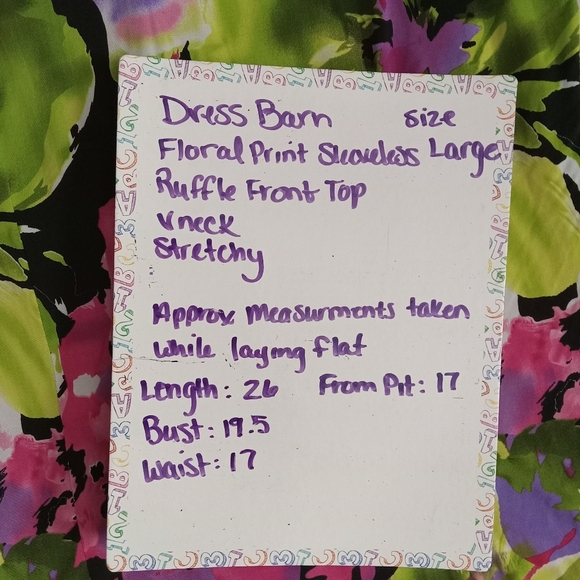 Dress Barn size
Floral Print Sleaveless Large
Ruffle Front Top
V neck
Stretchy
Approx. Measurments taken
while laying flat
Length: 26 From Pit: 17
Bust: 19.5
Waist: 17